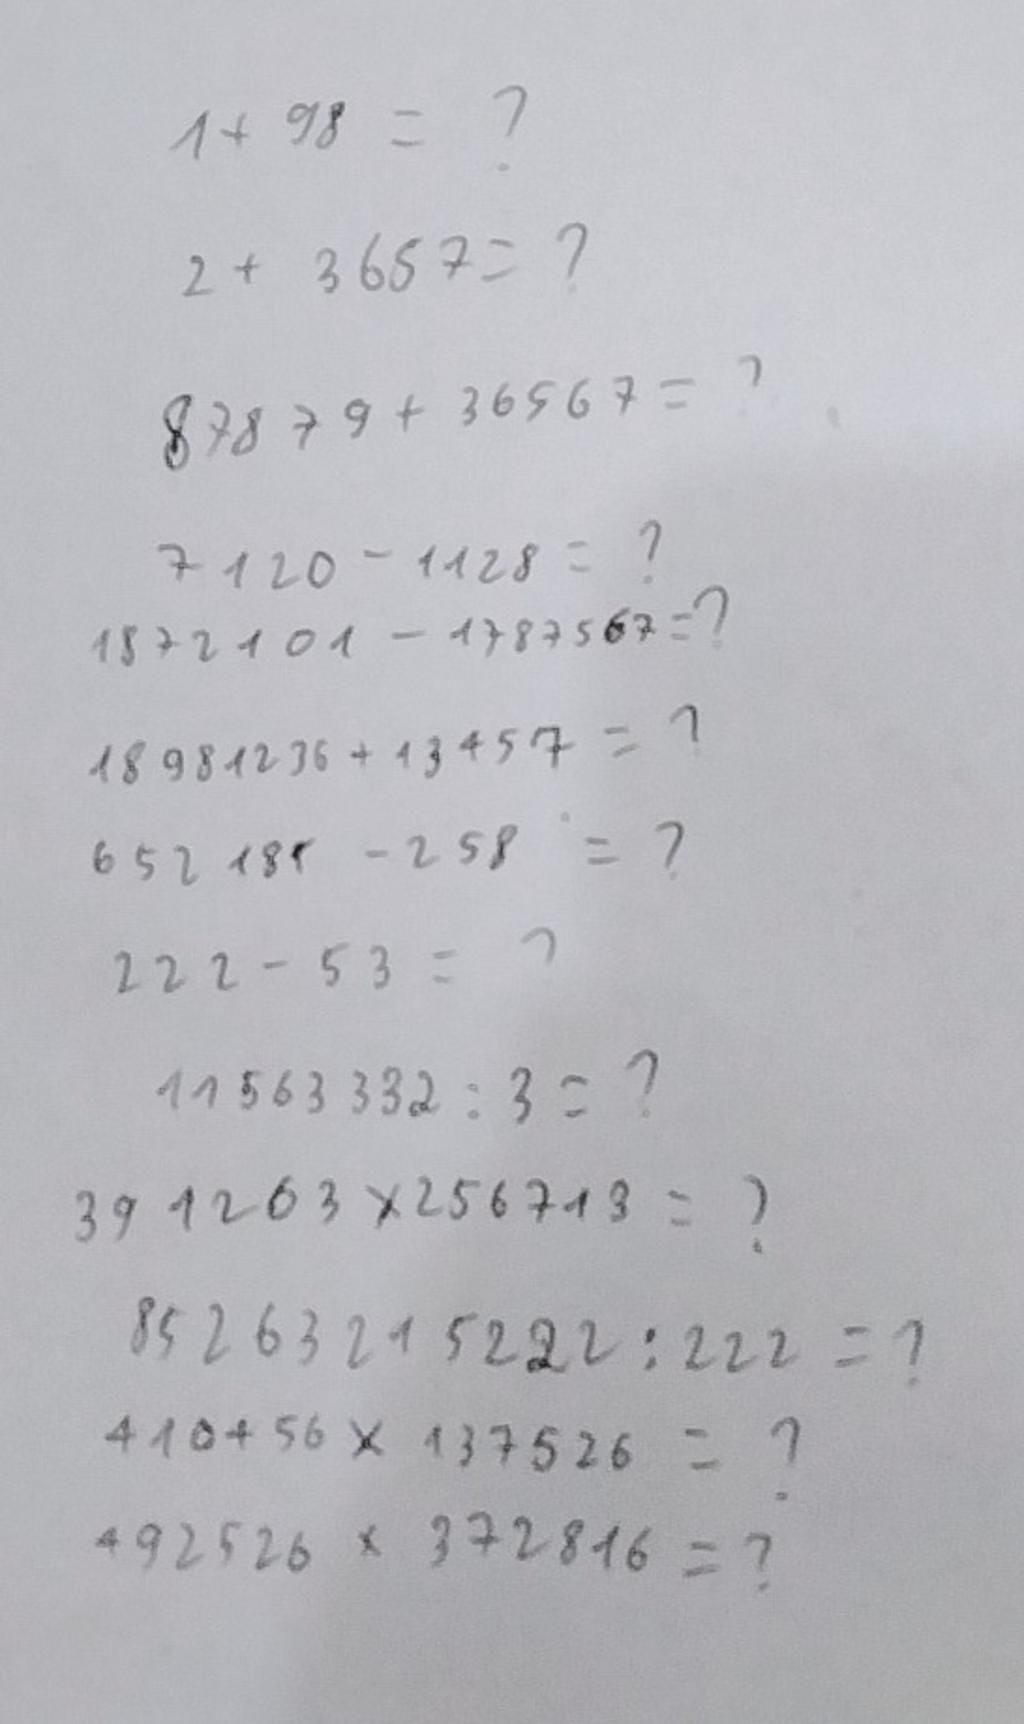 1 + 98 = ?
2 + 3657 = ?
87879 + 36567 = ?
7120 - 1128 = ?
1872101 - 1787567 = ?
18981236 + 13457 = ?
652185 - 258 = ?
222 - 53 = ?
11563332 : 3 = ?
391203 x 256713 = ?
852632152222 : 222 = ?
410 + 56 x 137526 = ?
492526 x 372816 = ?